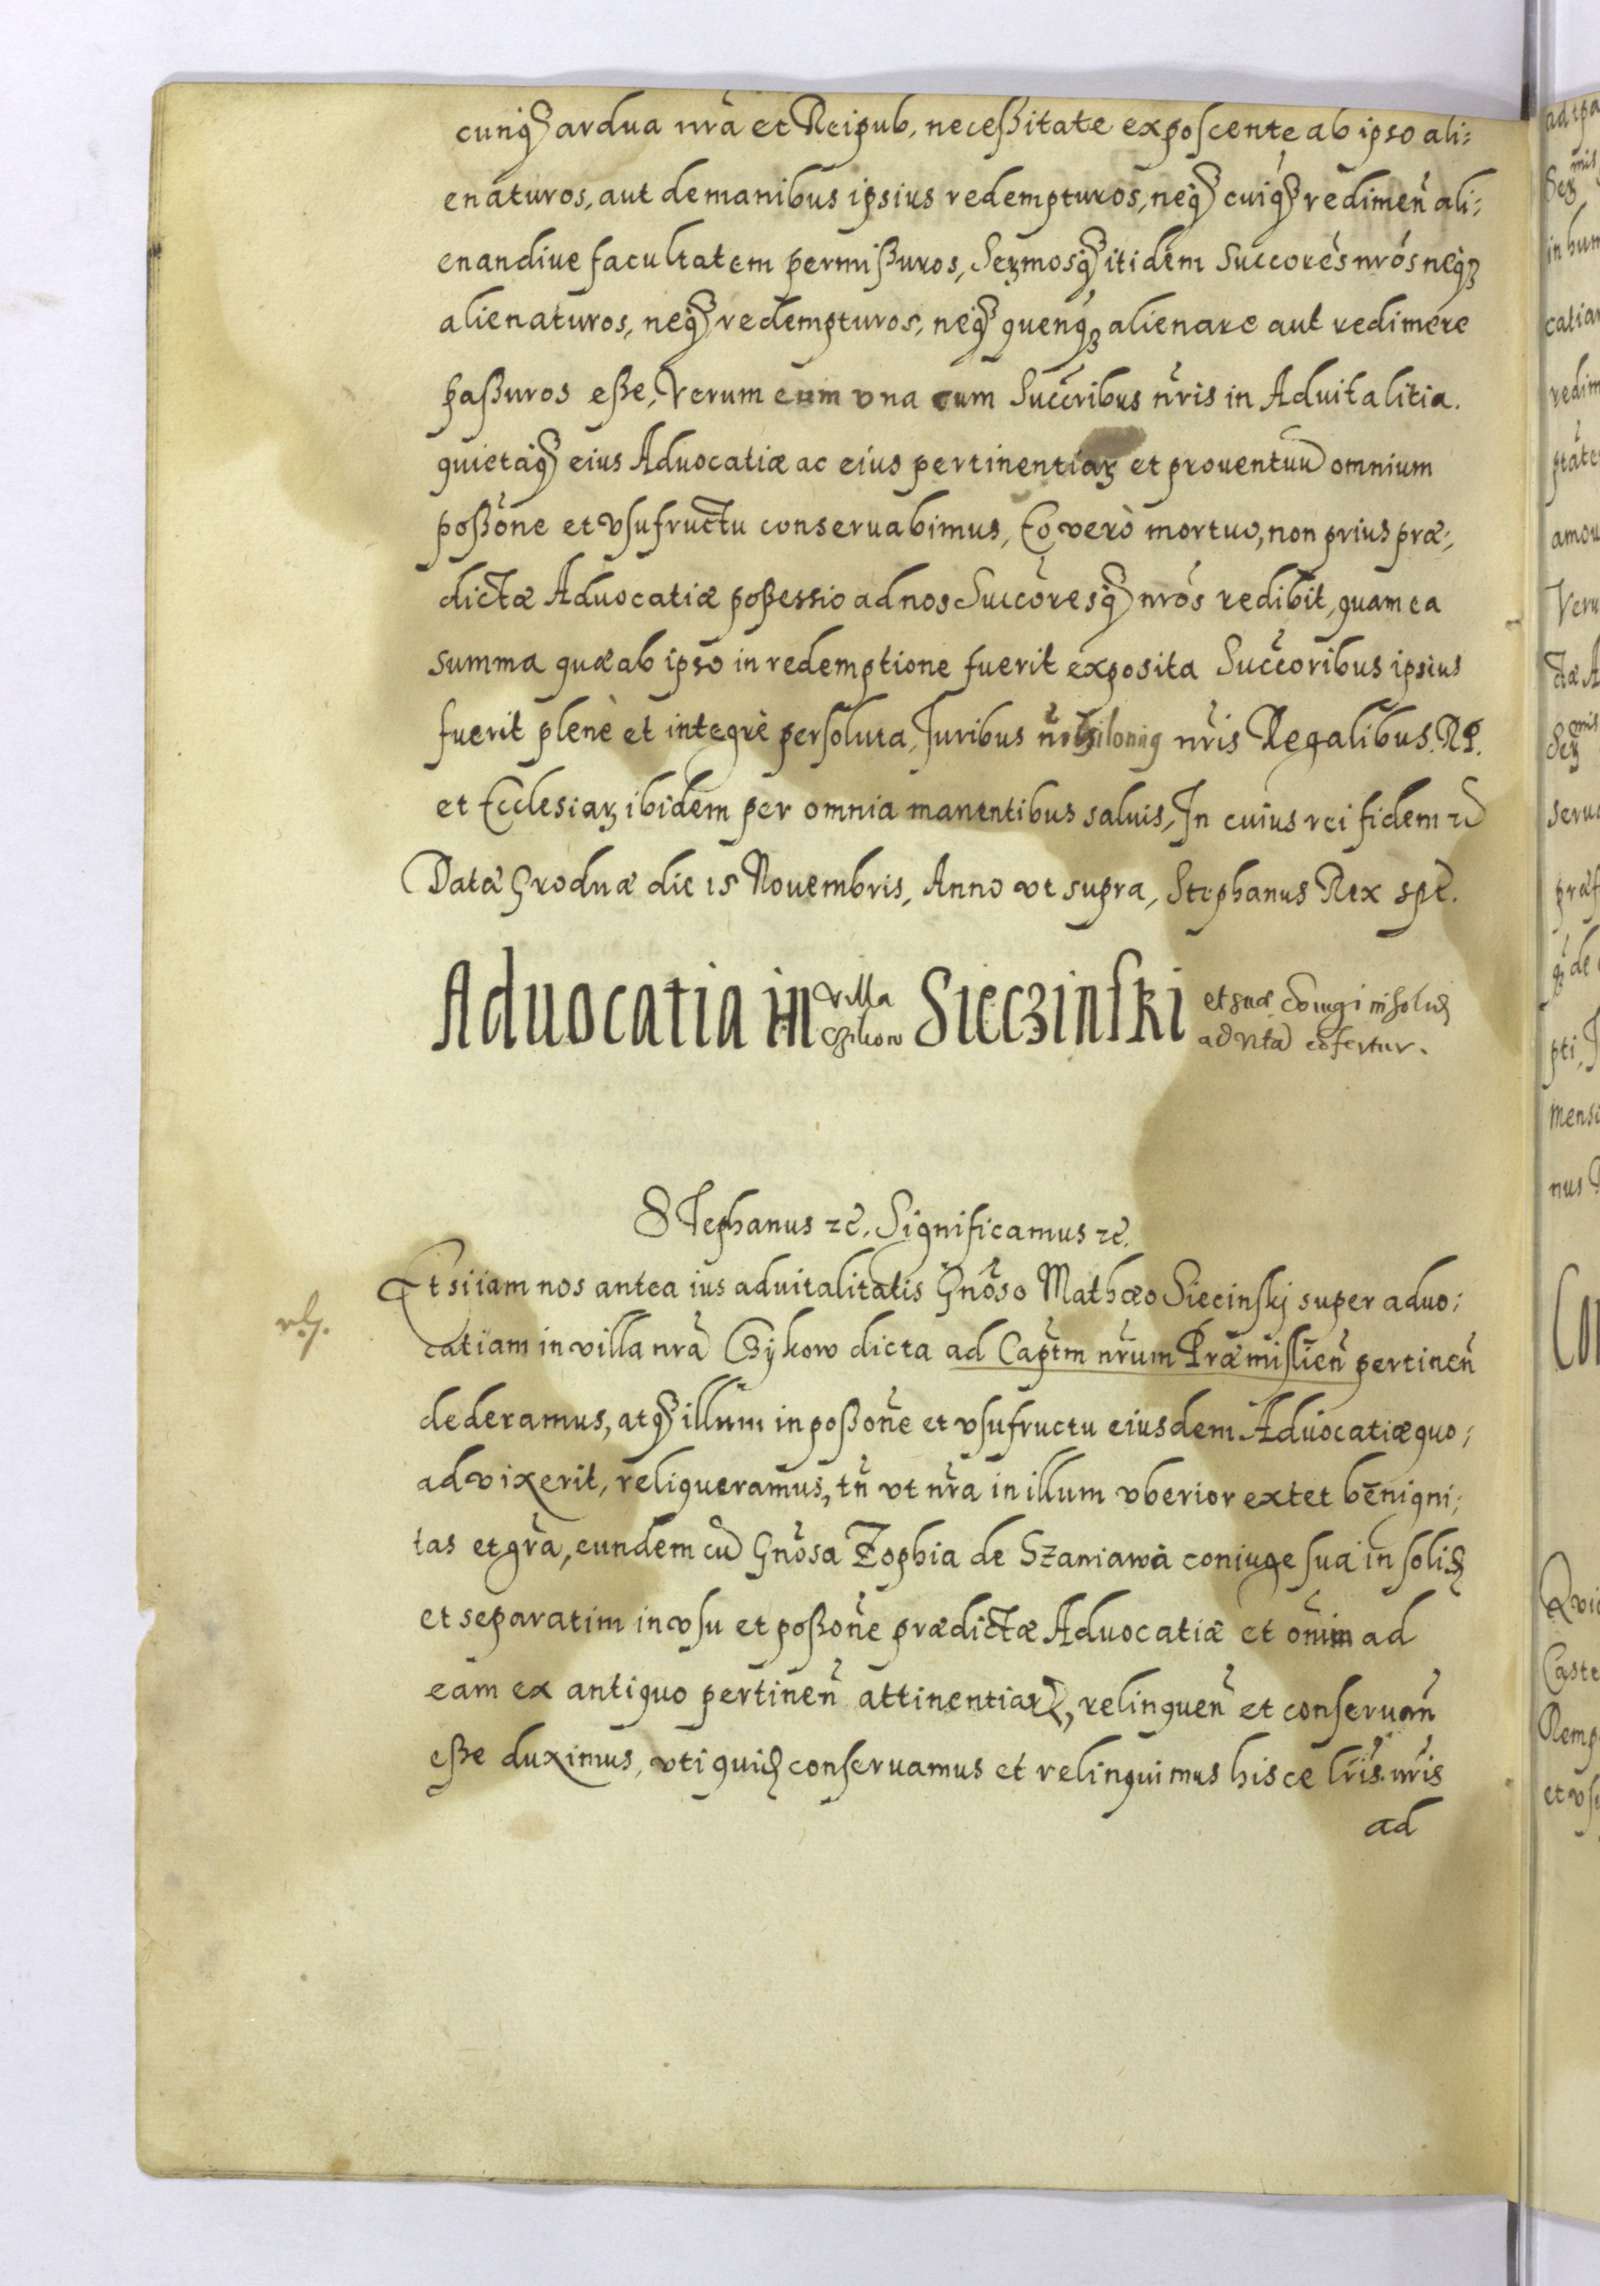 cunq₃ ardua nrã et Reipub, neceßitate exposcente ab ipso ali:
enaturos, aut de manibus ipsius redempturos, neq₃ cuiq₃ redimeñ ali:
enandiue facultatem permißuros, Sermosq₃ itidem Succorẽs nrõs neq₃
alienaturos, neq₃ redempturos, neq₃ quenq₃ alienare aut redimere
paßuros eße, Verum eum vna cum Succribus nr̃is in Aduitalitia.
quietaq₃ eius Aduocatiæ ac eius pertinentiaꝝ et prouentuũ omnium
poßõne et vsufructu conseruabimus, Eo verò mortuo, non prius præ:
dictæ Aduocatiæ poßessio ad nos Succõresq₃ nrõs redibit, quam ea
summa quæ ab ipso in redemptione fuerit exposita Succoribus ipsius
fuerit plenè et integrè persoluta, Juribus nr̃is Regalibus. RP.
et Ecclesiaꝝ ibidem per omnia manentibus saluis, In cuius rei fidem ꝛc̃
Datæ Grodnæ die 15 Nouembris, Anno vt supra, Stephanus Rex spt̃.
Aduocatia in villa Sieczinski et suæ
ad vitã cõfertur.
STephanus ꝛc̃. Significamus ꝛc̃.
Etsi iam nos antea ius aduitalitatis Gnõso Mathæo Siecinskj super aduo:
catiam in villa nrã Czijkow dicta ad Capt̃m nr̃um Præmislieñ pertineñ
dederamus, atq₃ illum in poßõne et vsufructu eiusdem Aduocatiæ quo:
ad vixerit, reliqueramus, tñ vt nr̃a in illum vberior extet benigni:
tas et gr̃a, eundem cũ Gnõsa Zophia de Szaniawa coniuge sua in solid
et separatim in vsu et poßõne prædictæ Aduocatiæ et oñim ad
eam ex antiquo pertineñ attinentiaꝝ, relinqueñ et conseruañ
eße duximus, vti quid conseruamus et relinquimus hisce lr̃is nr̃is
ad